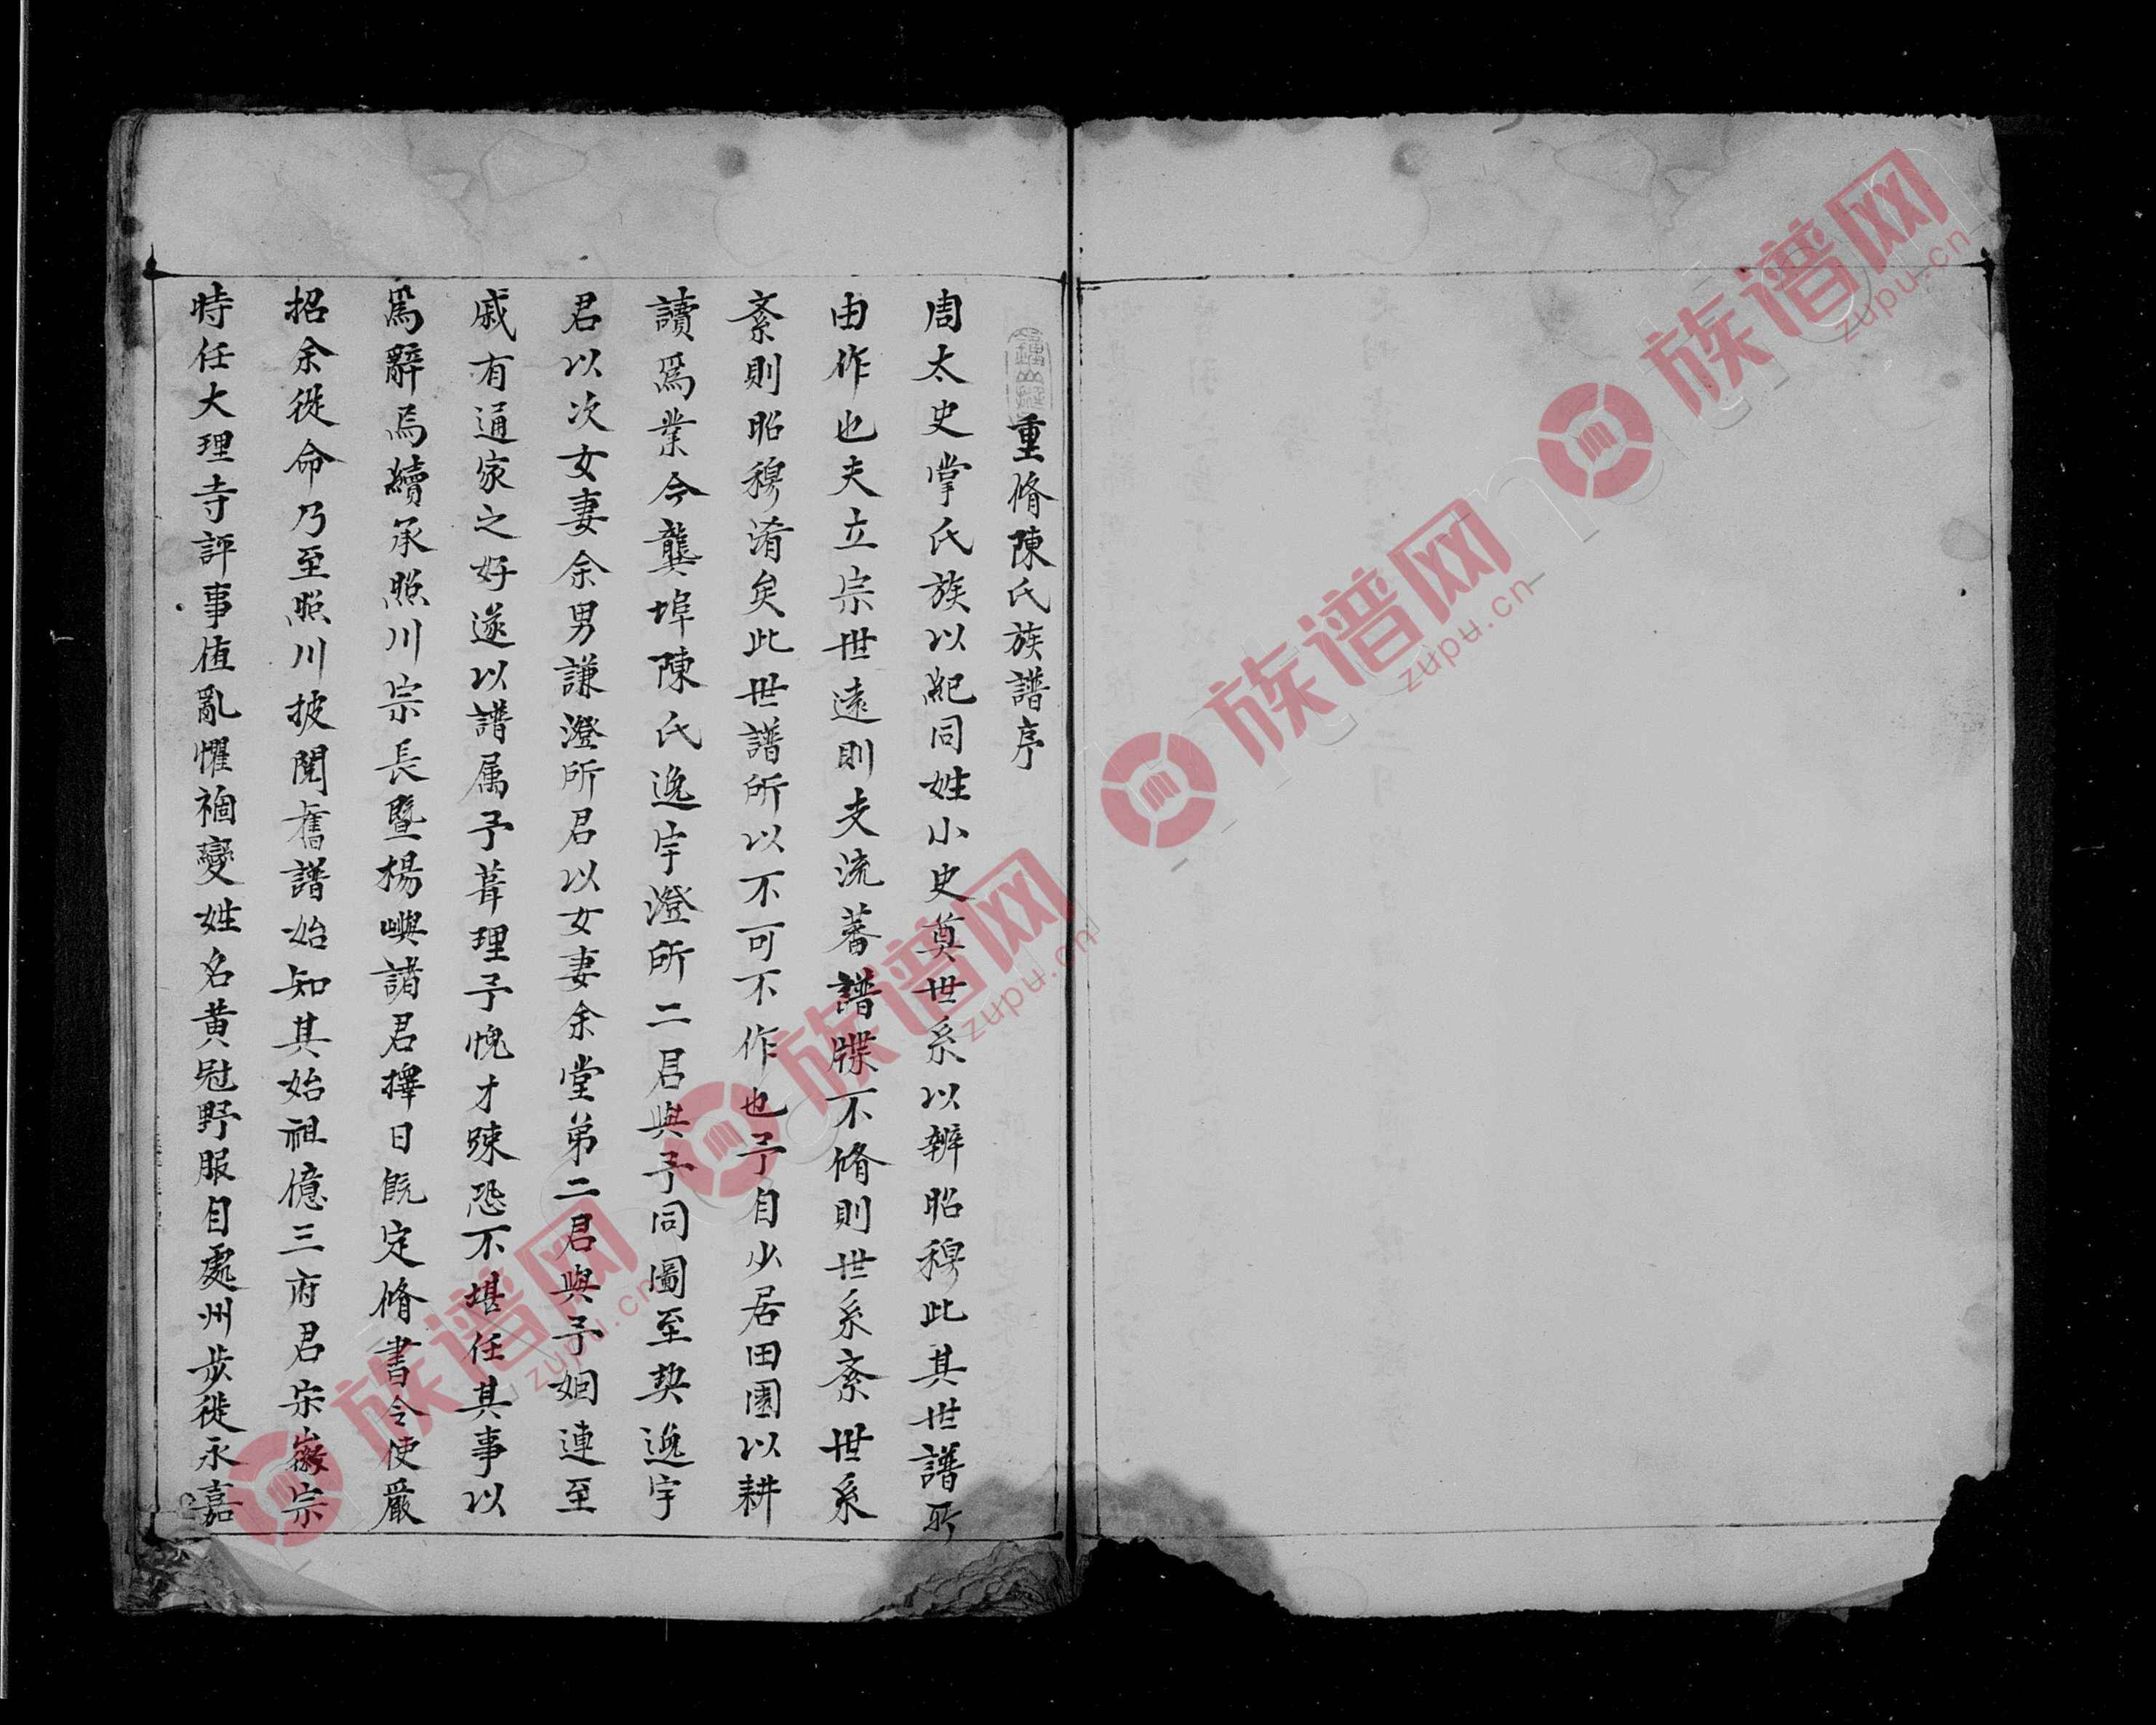 重脩陳氏族譜序
周太史掌氏族以紀同姓小史奠世系以辨昭穆此其世譜所
由作也夫立宗世遠則支流蕃譜牒不脩則世系紊世系
紊則昭穆淆矣此世譜所以不可不作也予自少居田園以耕
讀爲業今龔埠陳氏逸宇澄所二君與予同圖至契逸宇
君以次女妻余男謙澄所君以女妻余堂弟二君與予姻連至
戚有通家之好遂以譜属予葺理予愧才踈恐不堪任其事以
爲辭焉續承照川宗長暨楊嶼諸君擇日既定脩書令使嚴
招余從命乃至照川披閱舊譜始知其始祖億三府君宋徽宗
時任大理寺評事值亂懼禍變姓名黃冠野服自處州步徙永嘉
族谱网
zupu.cn
族谱网
zupu.cn
族谱网
zupu.cn
族谱网
zupu.cn